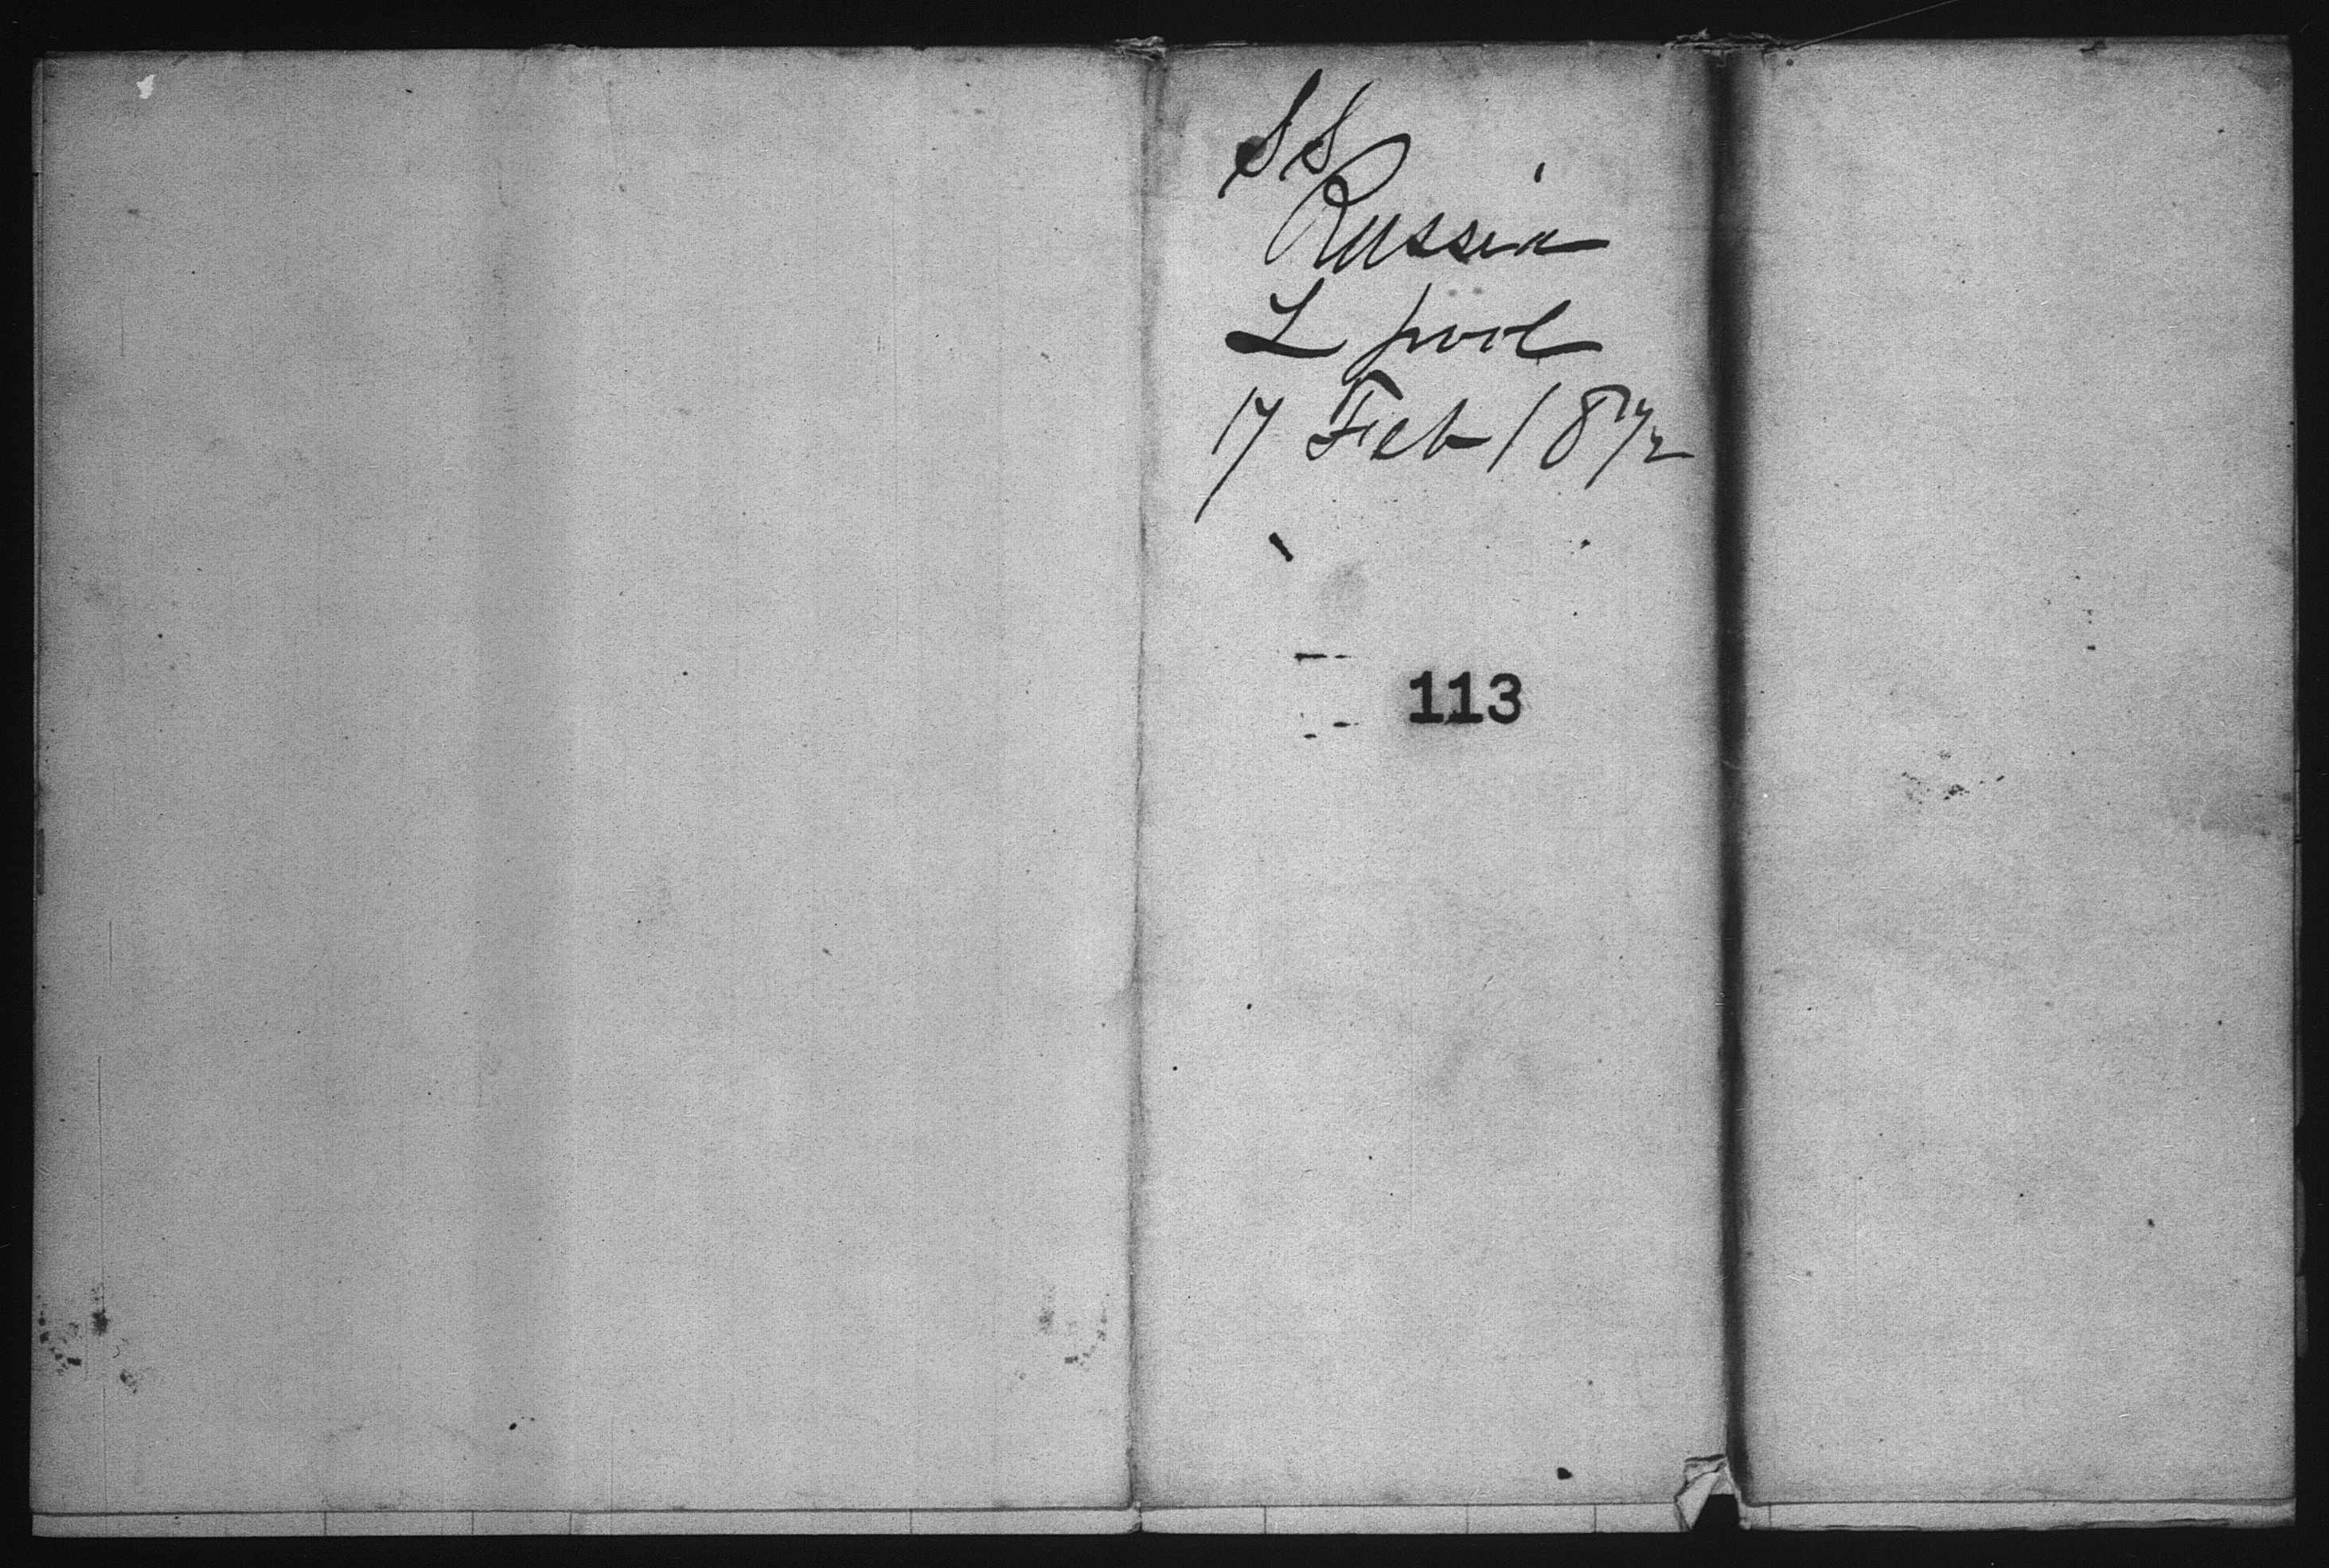 SS
Russia
L pool
17 Feb 1872
113